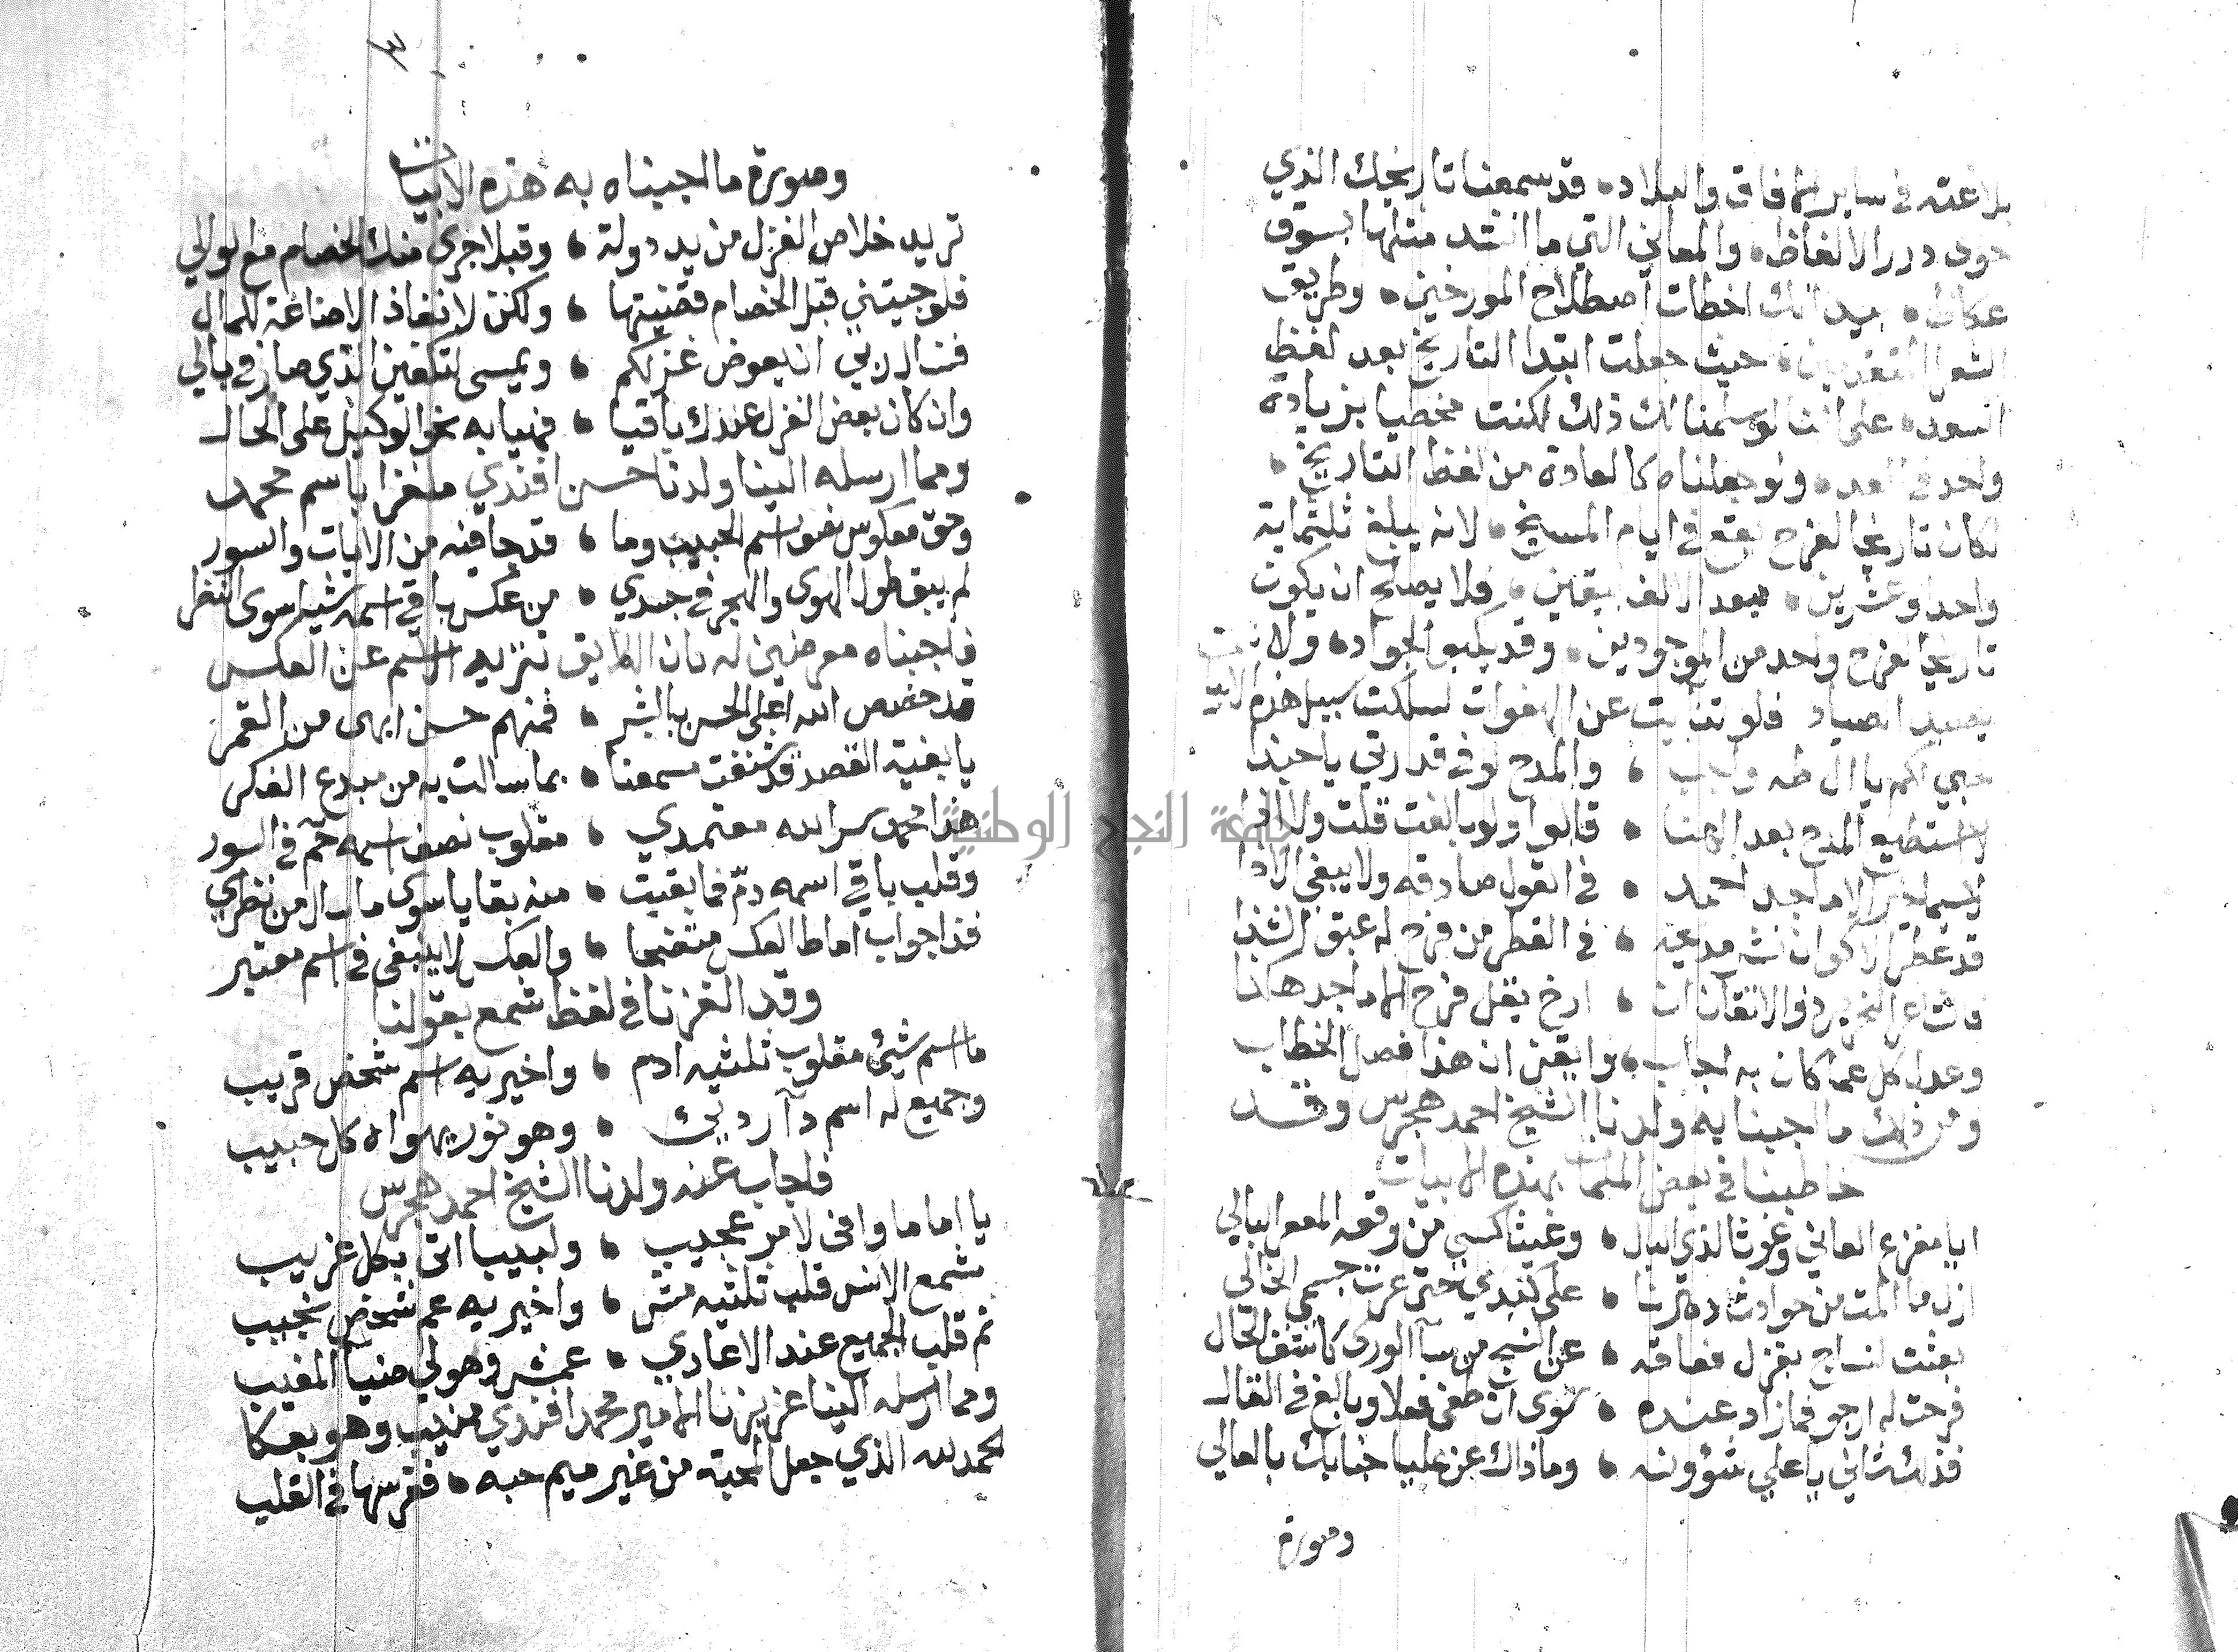 بلاغته في ساير الافاق والبلاد ه قد سمعنا تاريخك الذي
حوى درر الالفاظ ه والمعاني التي ما انشد مثلها بسوق
عكاظ ه بيد انك اخطات اصطلاح المورخين ه وطريق
الشعرا المتقدمين ه حيث جعلت ابتدا التاريخ بعد لفظ
السعد ه على اننا لو سلمنا لك ذلك لكنت مخطيا بزيادة
واحد في العد ه ولو جعلناه كالعادة من لفظ التاريخ ه
لكان تاريخا لفرح يقع في ايام المسيخ ه لانه يبلغ ثلثماية
واحدا وعشرين ه بعد الالف بيقين ه فلا يصح ان يكون
تاريخا لفرح واحد من الموجودين ه وقد يكبو الجواد ه ولا
يصيد الصياد فلو تنايت عن الهفوات لسلكت سبيل هذه الابيات
حبي لكم يا ال طه واجب ه والمدح لو في قدرتي يا حبذا
لا استطيع المدح بعد ه قالوا ولو بالغت قلت ولا اذا
لاسيما خير الاماجد احمد ه في القول صادقه ولا يبغي الاذا
قد عطر الاكوان نشر مديحه ه في القطر من فرح له عبق الشذا
ذو الاتقان ان ه ارخ يقل فرح الاماجد هكذا
وعدل كل عما كان به اجاب ه وايقن ان هذا فصل الخطاب
ومن ذلك ما اجبنا به ولدنا الشيخ احمد هجرس وقد
خاطبنا في بعض الملمات بهذه الابيات
ايا مفزع العاني وغوثا لذي البال ه وغيثا كسي من وقعه الممعر البالي
ازل ما المت من حوادث دهرنا ه على كبدي حتى عرت جسمي الخالي
بعثت لنساج بغزل فعاقه ه عن النسج من سآ الورى كاشف الحال
فرحت له ارجو فما زاد عنده ه سوى ان طغى فعلا وبالغ في القال
فذلك شاني يا علي شؤونه ه وما ذاك عن عليا جنابك بالعالي
وصورة
٣
وصورة ما اجبناه به هذه الابيات
تريد خلاص الغزل من يد دولة ه وقبلا جرى منك الخصام مع الوالي
فلو جيتني قبل الخصام قضيتها ه ولكن لانفاذ الاضاعة للمال
فنسال ربي ان يعوض غزلكم ه ويمسى لتكفين الذي صار في بالي
وان كان بعض الغزل عندك باقيا ه فهيا به نحو الوكيل على الحال
ومما ارسله الينا ولدنا حسن افندي ملغزا باسم محمد
وحق معكوس نصف اسم الحبيب وما ه قد جا فيه من الايات والسور
لم يبق طول الهوى والهجر في جسدي ه من عكس باقي اسمه شيا سوى النظر
فاجبناه معرضين له بان اللايق تنزيه الاسم عن العكس
قد خصص الله اعلى الحسن بالبشر ه فمنهم حسن ابهى من القمر
يا بغية القصد قد شنفت مسمعنا ه بما سالت به من مبدع الفكر
هذا محمد سر الله معتمدي ه مقلوب نصف اسمه حم في السور
وقلب باقي اسمه دم فما بقيت ه منه بقايا سوى ما سال من نظري
فذا جواب اماط العكس متضحا ه والعكس لا ينبغي في اسم معتبر
وقد الغزنا في لفظ شمع بقولنا
ما اسم شيئ مقلوب ثلثيه ادم ه واخيريه اسم شخص قريب
وجميع له اسم دآ رديئ ه وهو نور يهواه كل حبيب
فاجاب عنه ولدنا الشيخ احمد هجرس
يا اماما وافى لامر عجيب ه ولبيبا اتى بكل غريب
شمع الانس قلب ثلثيه مش ه واخيريه عم شخص نجيب
ثم قلب الجميع عند الاعادي ه عمش وهو لي ضيآ المغيب
ومما ارسله الينا عزيزنا الامير محمد افندي منيب وهو بعكا
الحمد لله الذي جعل المحبة من غير ميم حبه ه فغرسها في القلب
جامعة النجاح الوطنية